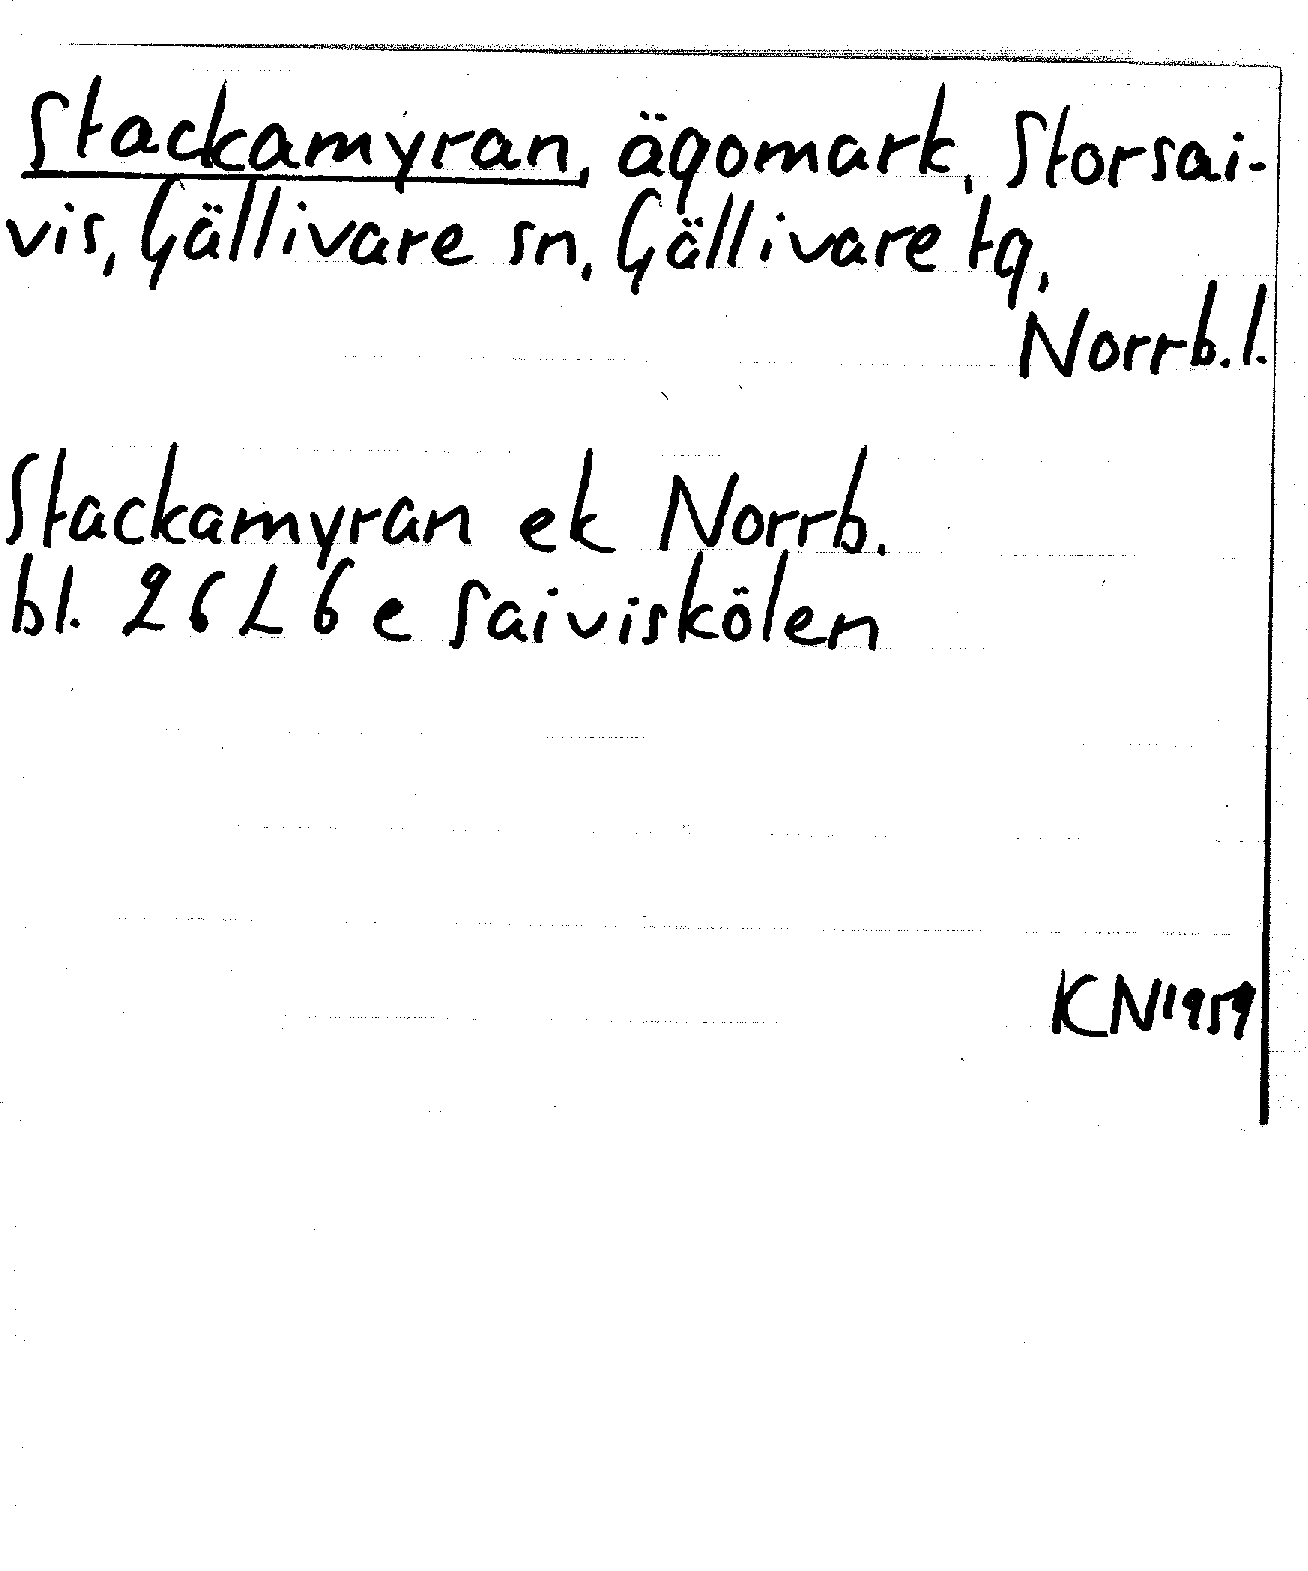 Stackamyran, ägomark, Storsai-
vis, Gällivare sn, Gällivare tg,
Norrb. l.
Stackamyran ek Norrb.
bl. 26 L 6 e Saiviskölen
KN 1959